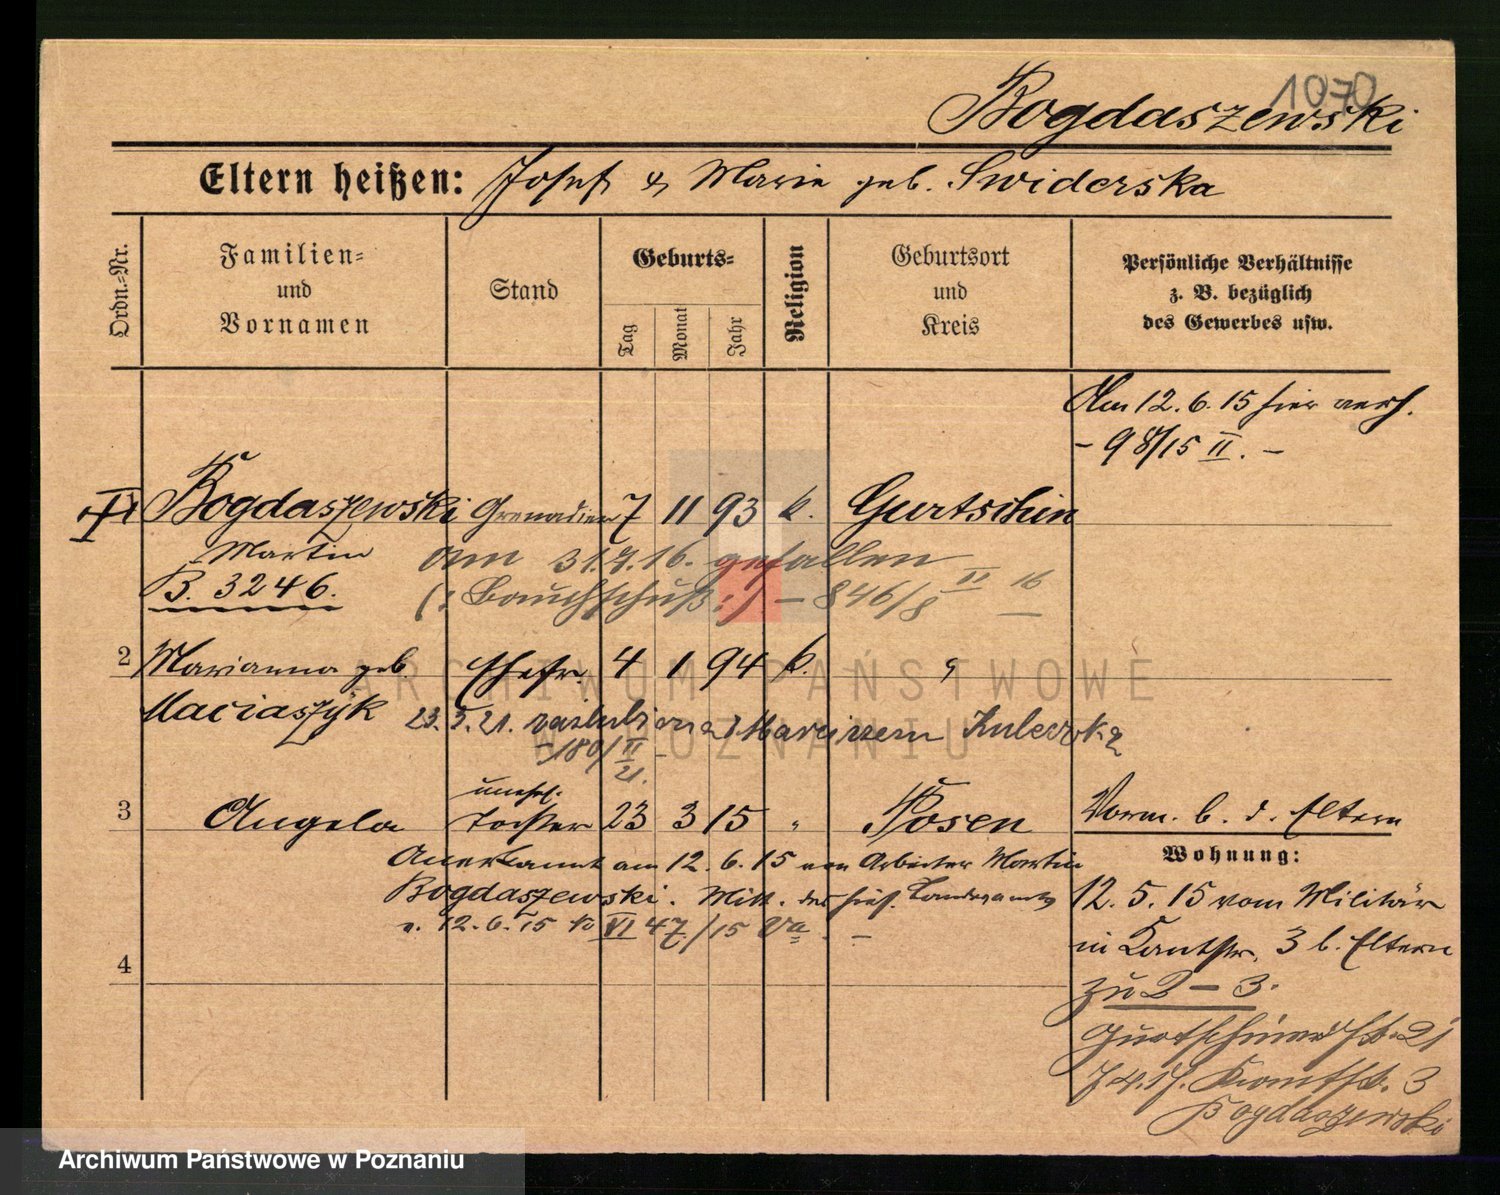 1070
Bogdaszewski
Eltern heißen: Josef & Marie geb. Swiderska
Ordn.-Nr.
Familien-
und
Vornamen
Stand
Geburts-
Tag
Monat
Jahr
Religion
Geburtsort
und
Kreis
Persönliche Verhältnisse
z. B. bezüglich
des Gewerbes usw.
Am 12.6.15 hier verh.
- 98/15 II. -
Bogdaszewski Grenadier 7 11 93 k. Gurtschin
Martin
am 31.7.16. gefallen
B. 3246.
(: Bauchschuß :) - 846/8 II 16
2 Marianna geb. Ehefr. 4 1 94 k. "
Maciaszyk
23.3.21. zaślubiona z Marcinem
- 180/II 21.
unehel.
3 Angela Tochter 23 3 15 " Posen
Vorm. b. d. Eltern
Anerkannt am 12.6.15 von Arbeiter Martin
Bogdaszewski. Mitt. des hies. Standesamts
v. 12.6.15 No VI 47/15 Va -
Wohnung:
12.5.15 vom Militär
in Kantstr. 3 b. Eltern
4
zu 2 - 3.
Gurtschinerstr. 21
7.4.17. Kantstr. 3
Bogdaszewski
ARCHIWUM PAŃSTWOWE
W POZNANIU
Archiwum Państwowe w Poznaniu